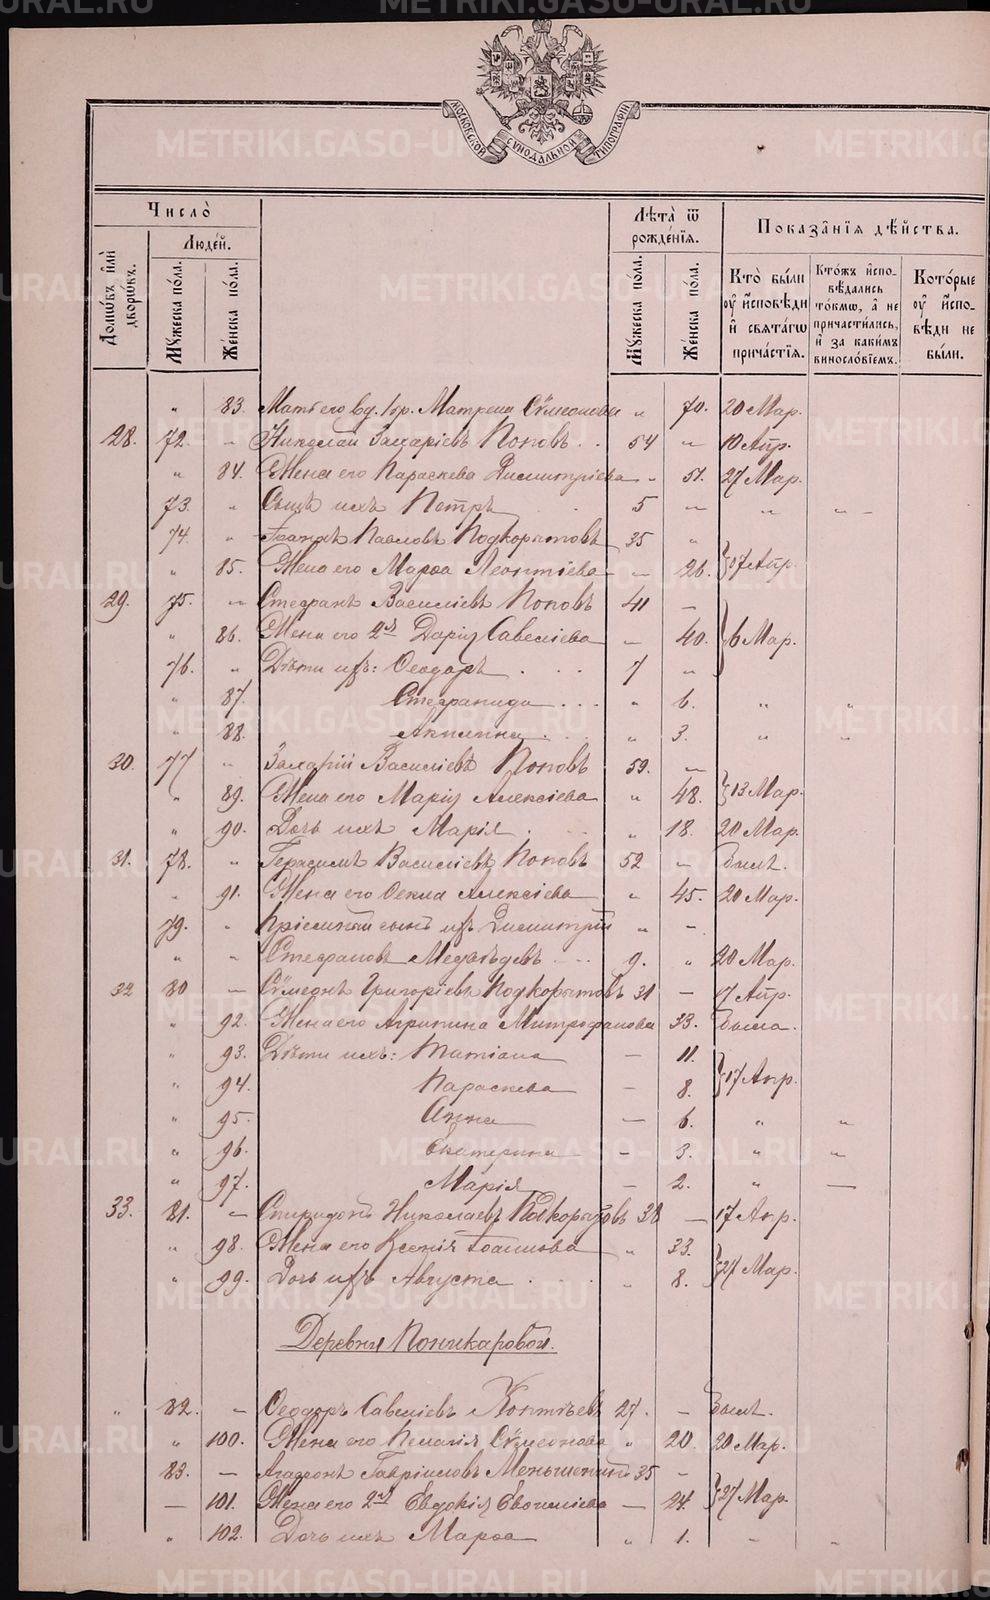 МОСКОВСКОЙ СѴНОДАЛЬНОЙ ТИПОГРАФІИ
Число̀
Люде́й.
Домѡ́въ и҆лѝ дворѡ́въ.
Мꙋ́жеска по́ла.
Же́нска по́ла.
Лѣ́та ѿ рожде́нїѧ.
Мꙋ́жеска по́ла.
Же́нска по́ла.
Показа̑нїѧ дѣ́йства.
Кто̀ бы́ли ᲂу҆ и҆́сповѣди и҆ свѧта́гѡ прича́стїѧ.
Кто́жъ и҆спо-вѣ́дались то́кмѡ, а҆ не причасти́лись, и҆ за каки́мъ винослѡ́вїемъ.
Кото́рые ᲂу҆ и҆́спо-вѣди не бы́ли.
" 83. Мать его вд. Матрена Сѵмеонова " 70. 20 Мар.
28. 72. " Николай Захаріевъ Поповъ . . 54 " 10 Апр.
" 84. Жена его Параскева Димитріева " 51. 27 Мар.
73. " Сынъ ихъ Петръ 5 " " " –
74. " Іоаннъ Павловъ Подкорытовъ 35 "
" 85. Жена его Марѳа Леонтіева — 26. } 17 Апр.
29. 75. " Стефанъ Василіевъ Поповъ 41 —
" 86. Жена его 2я Дарія Савеліева — 40. } 6 Мар.
76. " Дѣти ихъ: Ѳеодоръ . . . 7 "
" 87. Стефанида . . . " 6. " "
" 88. Акилина . . . " 3. " "
30. 77 " Захарій Василіевъ Поповъ 59. "
" 89. Жена его Марія Алексіева " 48. } 13 Мар.
" 90. Дочь ихъ Марія . . . " 18. 20 Мар.
31. 78. " Герасимъ Василіевъ Поповъ 52 — Былъ.
" 91. Жена его Ѳекла Алексіева " 45. 20 Мар.
79. " Пріемный сынъ ихъ Димитрій " –
" " Стефановъ Медвѣдевъ . . . 9. " 20 Мар.
32 80 — Сѵмеонъ Григоріевъ Подкорытовъ 31 — 17 Апр.
" 92. Жена его Агрипина Митрофанова " 33. Была.
" 93. Дѣти ихъ: Татіана — 11.
" 94. Параскева — 8. } 17 Апр.
" 95. Анна — 6. " "
" 96. Екатерина — 3. " "
" 97. Марія — 2. " —
33. 81. — Спиридонъ Николаевъ Подкорытовъ 38 — 17 Апр.
" 98. Жена его Ксенія " 33.
" 99. Дочь ихъ Августа . . . " 8. } 27 Мар.
Деревня Поникаровой.
" 82. — Ѳеодоръ Савеліевъ 27. — Былъ.
" 100. Жена его Пелагія Сѵмеонова " 20. 20 Мар.
83. — Агафонъ Гавріиловъ Меньшенинъ 35 —
— 101. Жена его 2я Евдокія Евѳиміева — 24. } 27 Мар.
" 102. Дочь ихъ Марѳа " 1. – "
METRIKI.GASO-URAL.RU